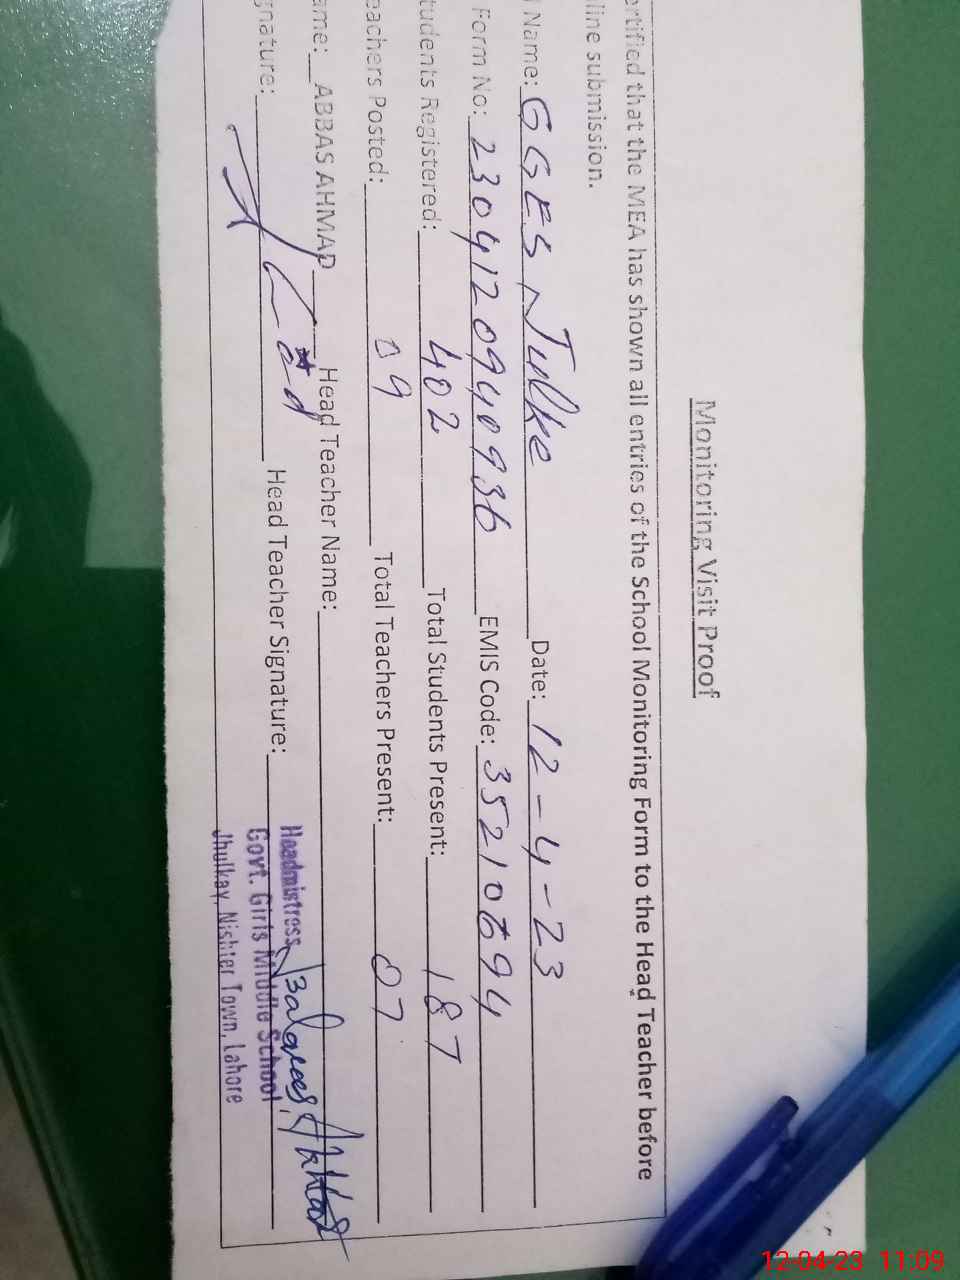 Monitoring Visit Proof
ertified that the MEA has shown all entries of the School Monitoring Form to the Head Teacher before
line submission.
Name: GGES Julke Date: 12-4-23
Form No: 2304120940936 EMIS Code: 35210694
tudents Registered: 402 Total Students Present: 187
eachers Posted: 09 Total Teachers Present: 07
ame: ABBAS AHMAD Head Teacher Name:
gnature: Head Teacher Signature: Akhtar
Headmistress
Govt. Girls Middle School
Jhulkay, Nishter Town, Lahore
12-04-23 11:09